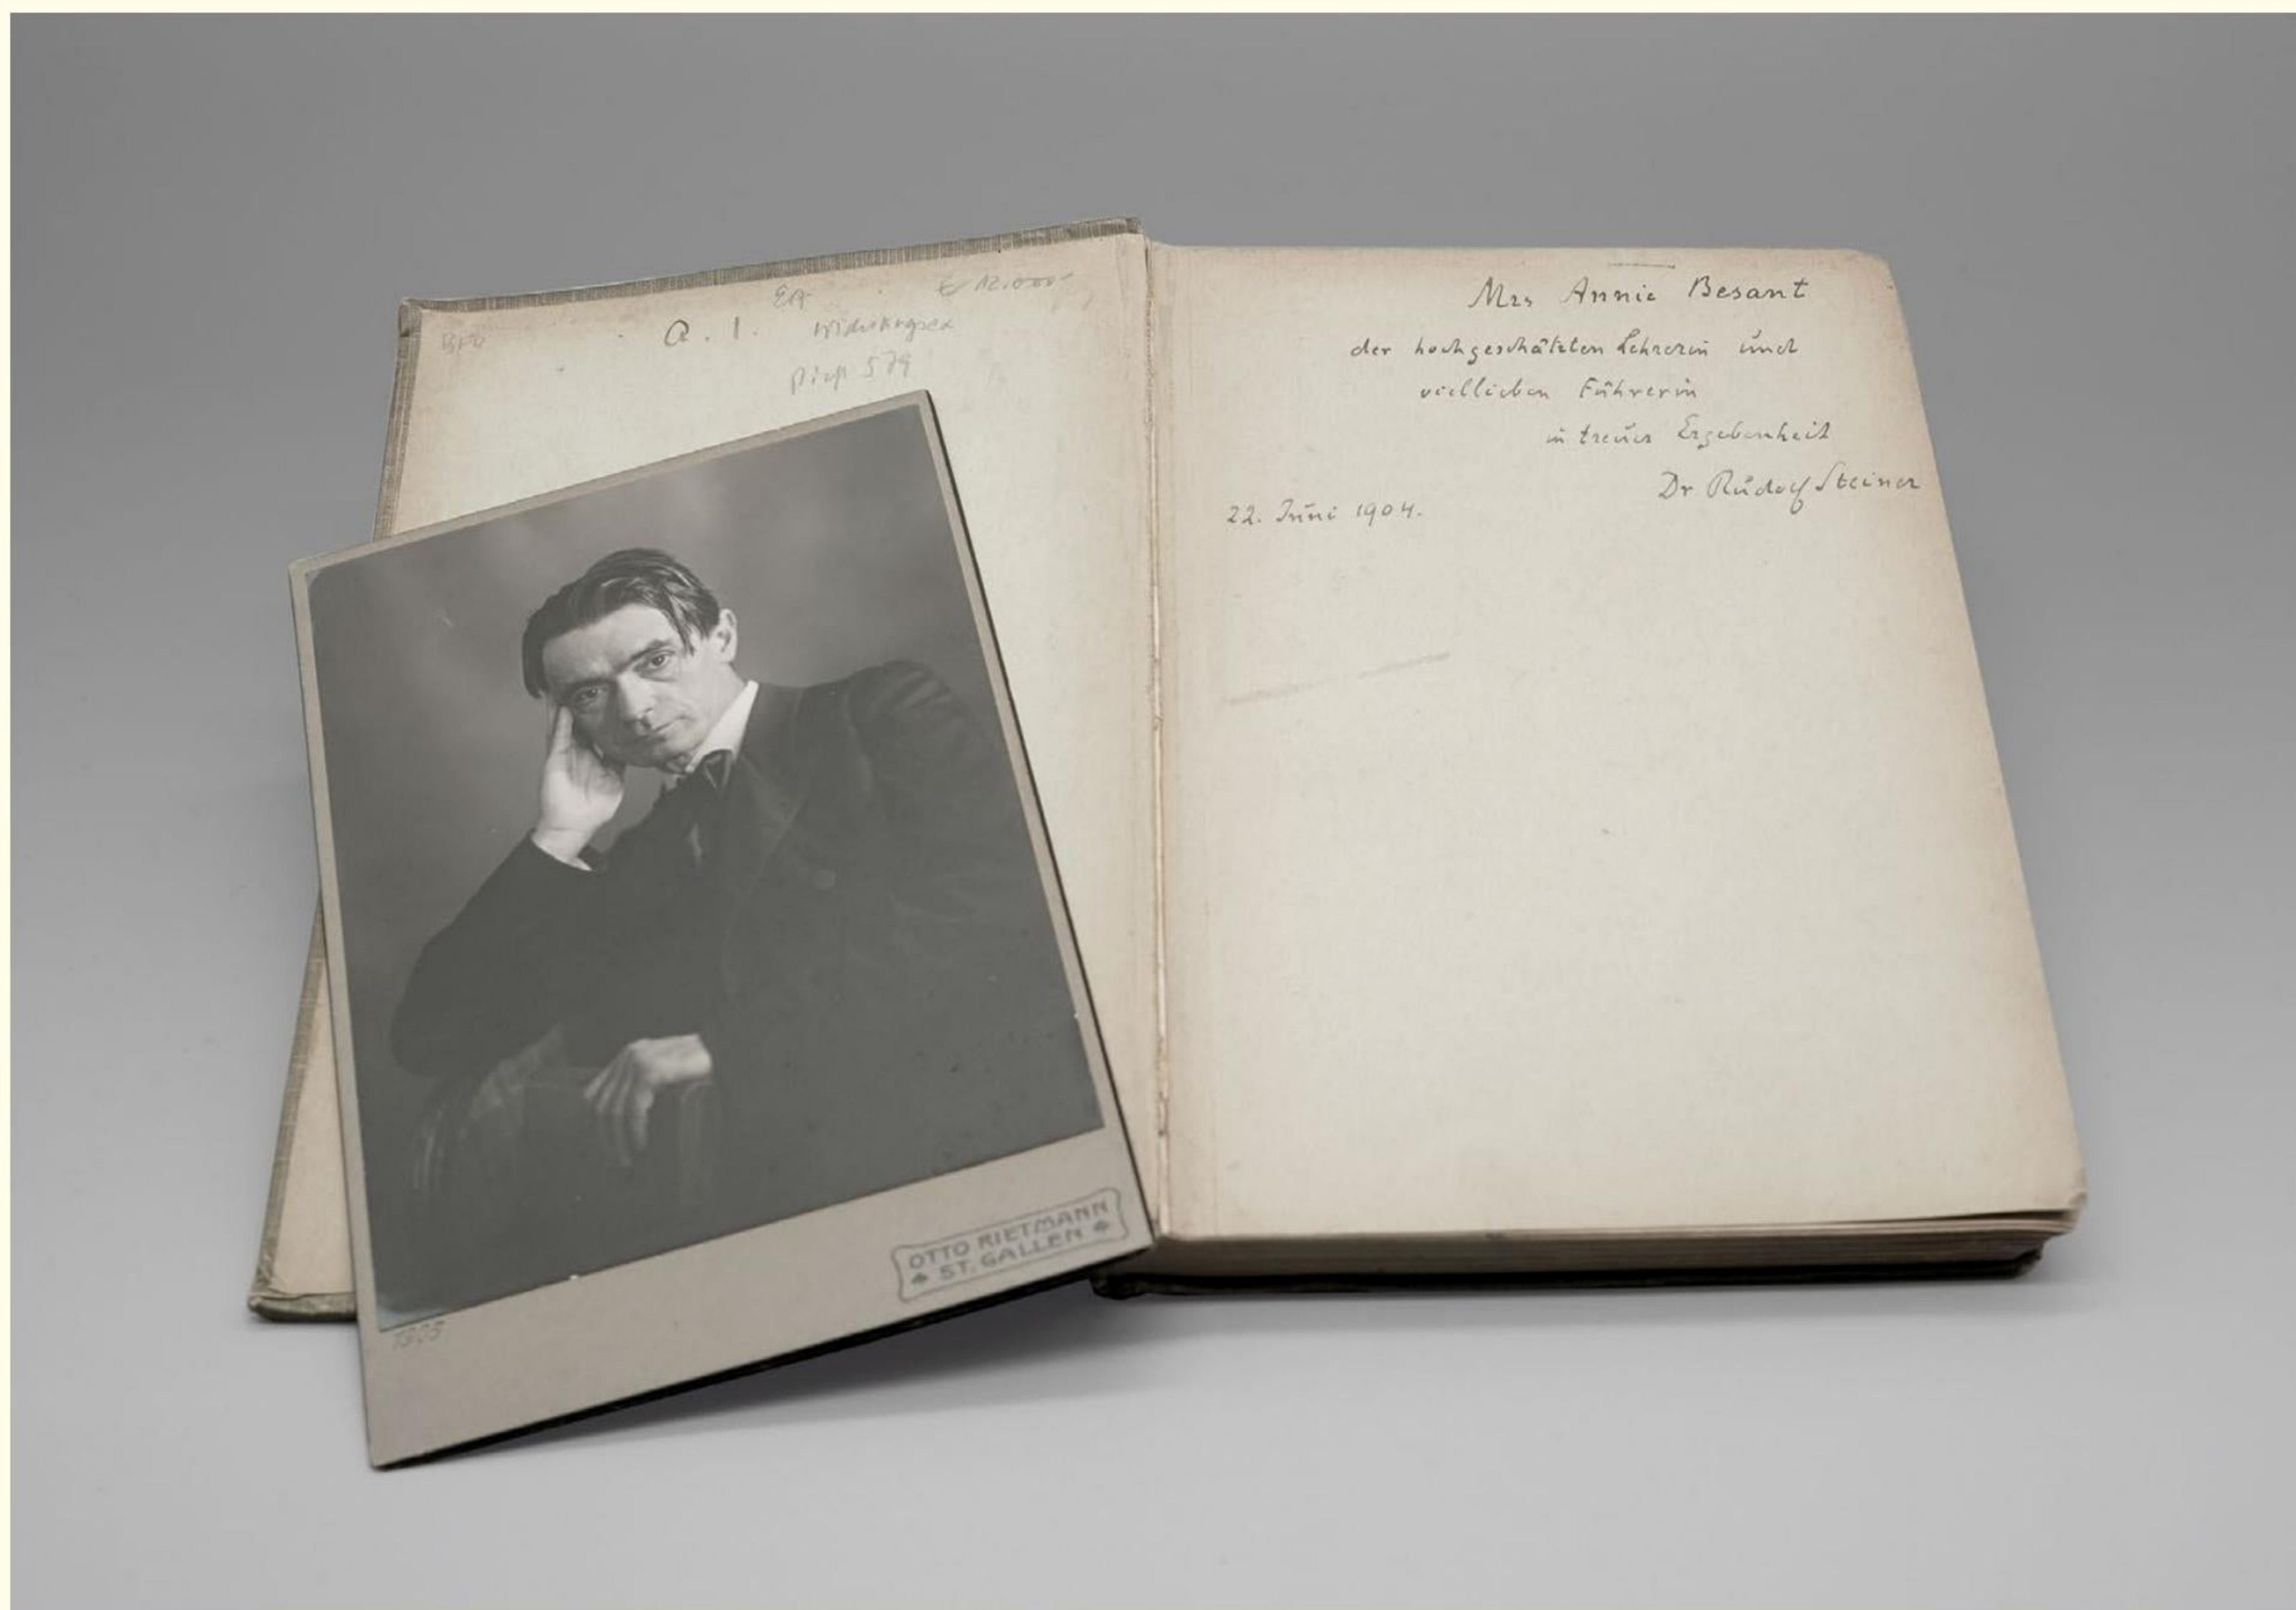 EA
€ 12.000
Q. 1.
Widmungsex
579
Mrs Annie Besant
der hochgeschätzten Lehrerin und
viellieben Führerin
in treuer Ergebenheit
Dr Rudolf Steiner
22. Juni 1904.
OTTO RIETMANN
ST. GALLEN